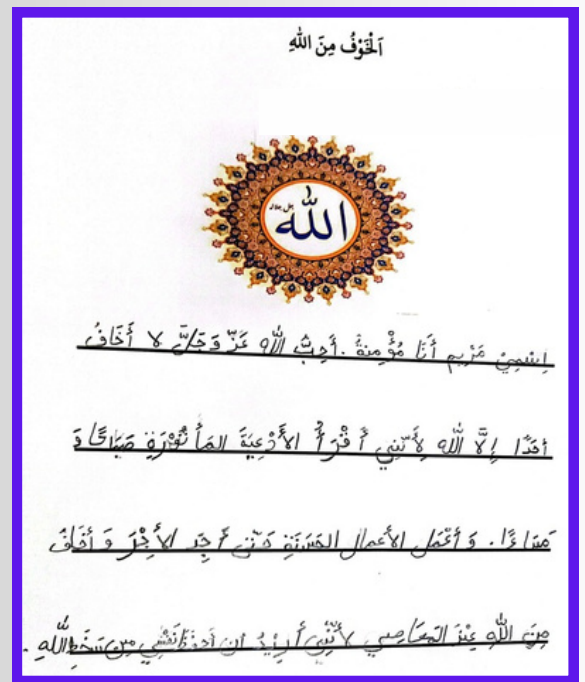 اَلْخَوْفُ مِنَ اللهِ
الله جل جلاله
اِسْمِيْ مَرْيَم أَنَا مُؤْمِنَةٌ. أُحِبُّ اللهَ عَزَّ وَجَلَّ لا أَخَافُ
أحَدًا إِلَّا الله لِأَنَّنِي أَقْرَأُ الأَدْعِيَةَ المَأْثُوْرَةِ صَبَاحًا وَ
مَسَاءًا. وَ أَعْمَل الأعمال الحَسَنَةِ حَتّى أَجِد الأَجْرَ وَ أَخَافُ
مِنَ اللهِ عِنْدَ المَعَاصِي لأَنَّنِي أُرِيْدُ ان أحفَظَ نَفْسِي مِن سَخَطِ اللهِ.